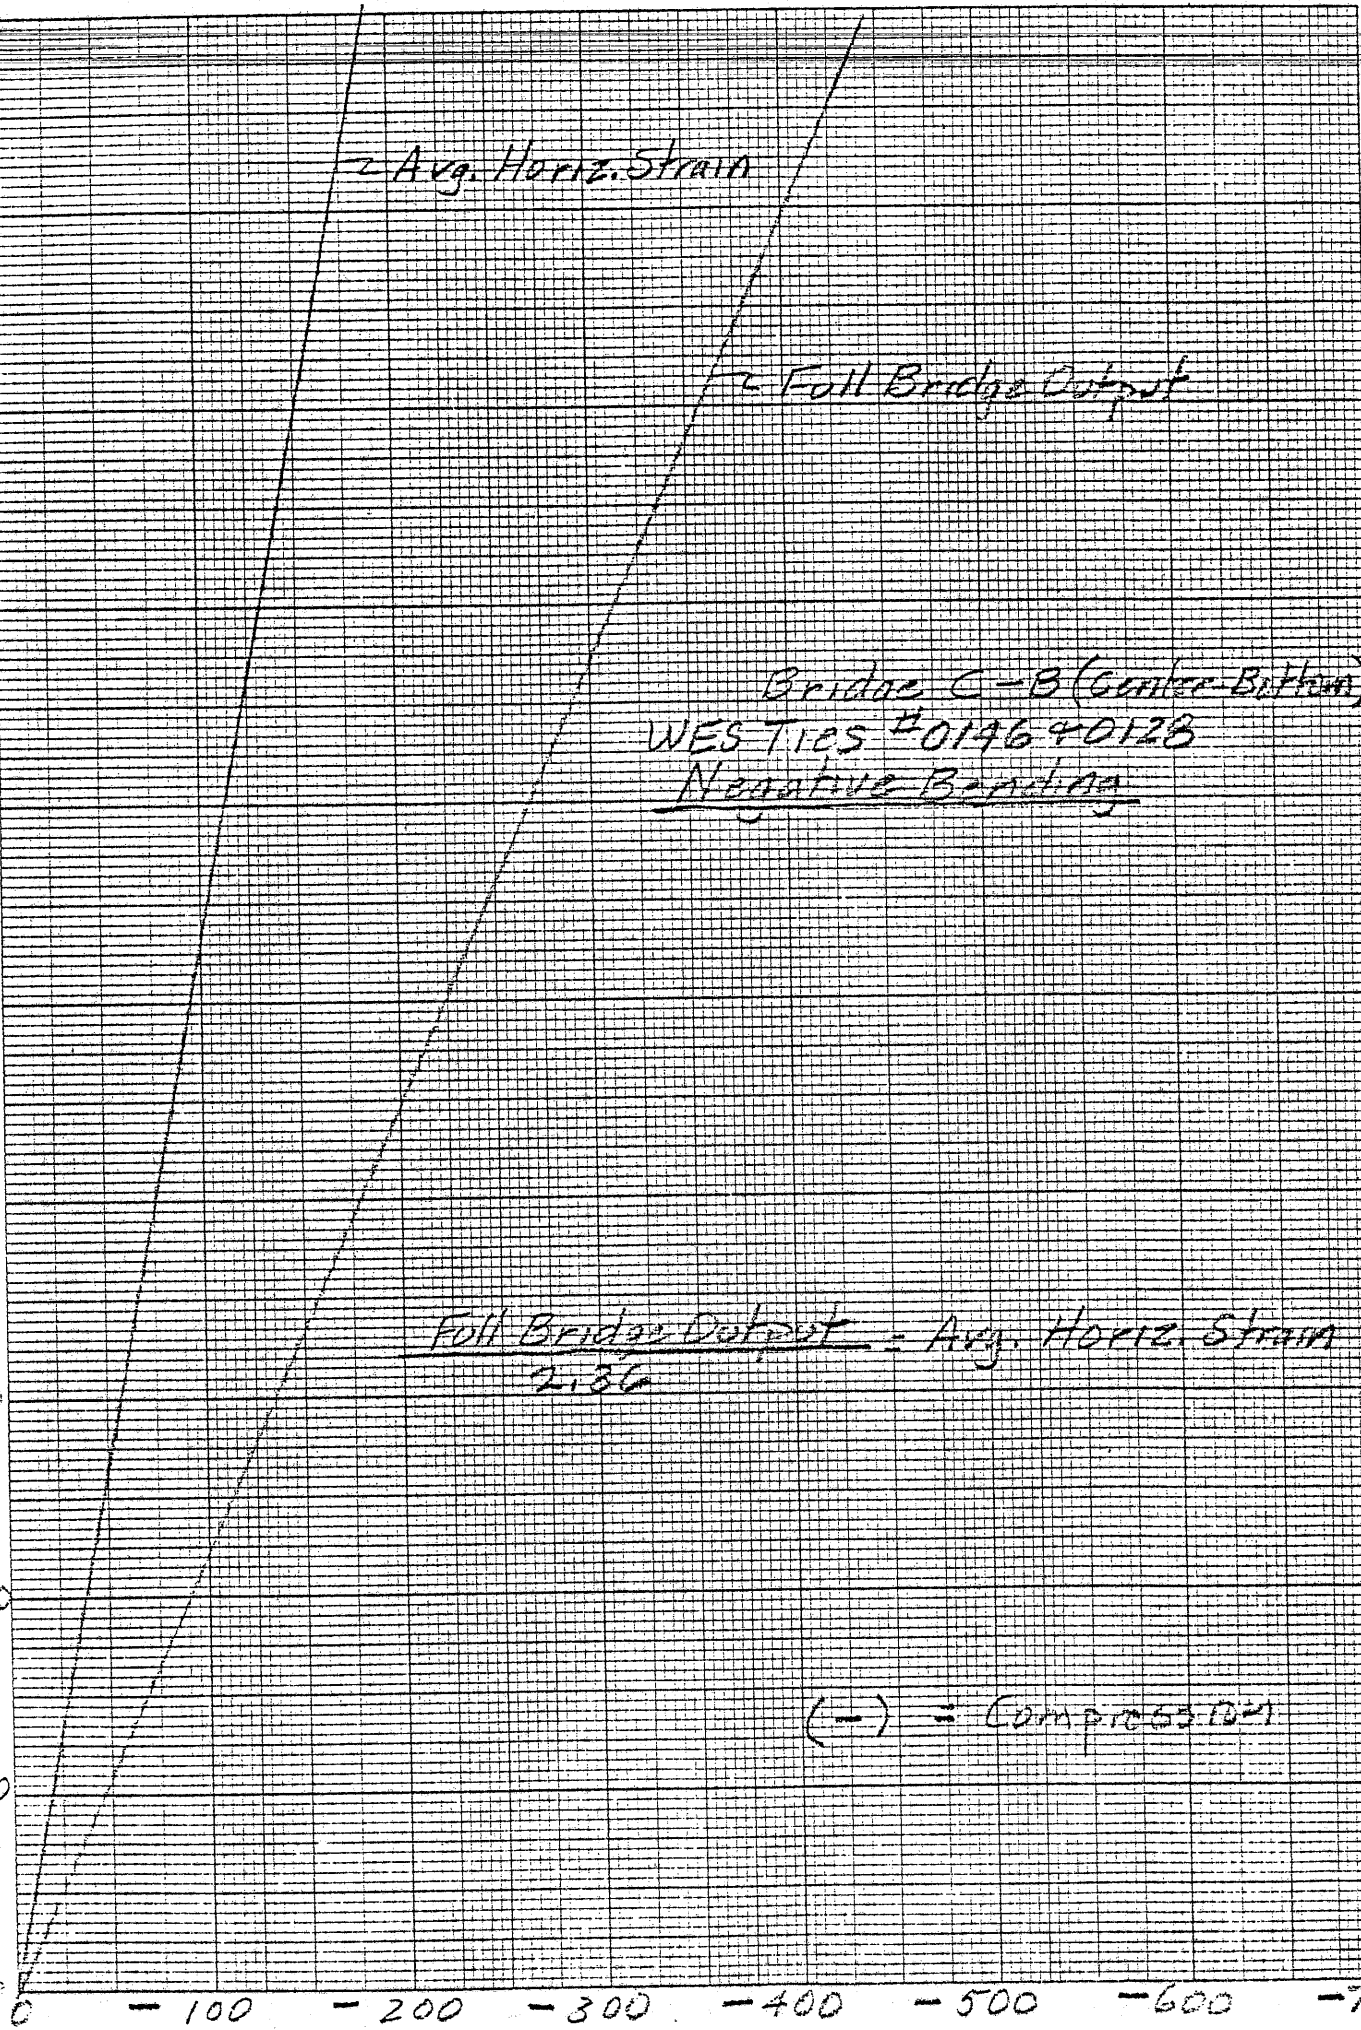 Avg. Horiz. Strain
Full Bridge Output
Bridge C-B (Center-Bottom)
WES Ties #0146 & 0128
Negative Bending
Full Bridge Output = Avg. Horiz. Strain
2.36
(-) = Compression
0 -100 -200 -300 -400 -500 -600